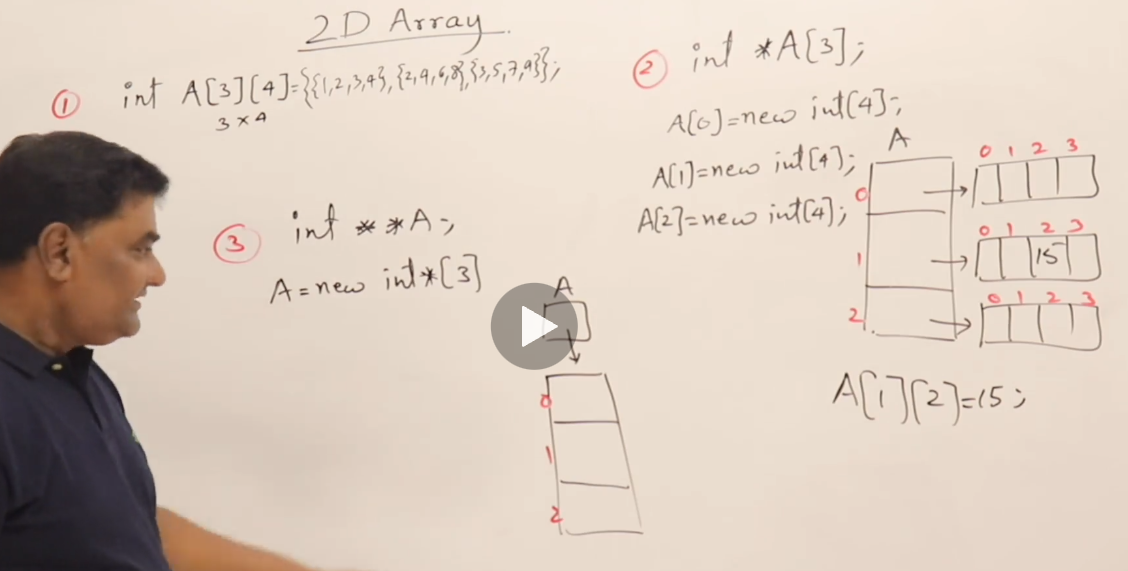 2D Array
① int A[3][4]={{1,2,3,4},{2,4,6,8},{3,5,7,9}};
3×4
② int *A[3];
A[0]=new int[4];
A[1]=new int[4];
A[2]=new int[4];
A
0 1 2 3
0
0 1 2 3
1
15
0 1 2 3
2
A[1][2]=15;
③ int **A;
A=new int*[3]
A
0
1
2